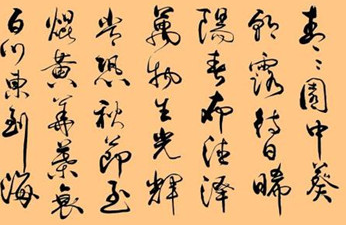 青青園中葵
朝露待日晞
陽春布德澤
萬物生光輝
常恐秋節至
焜黃華葉衰
百川東到海